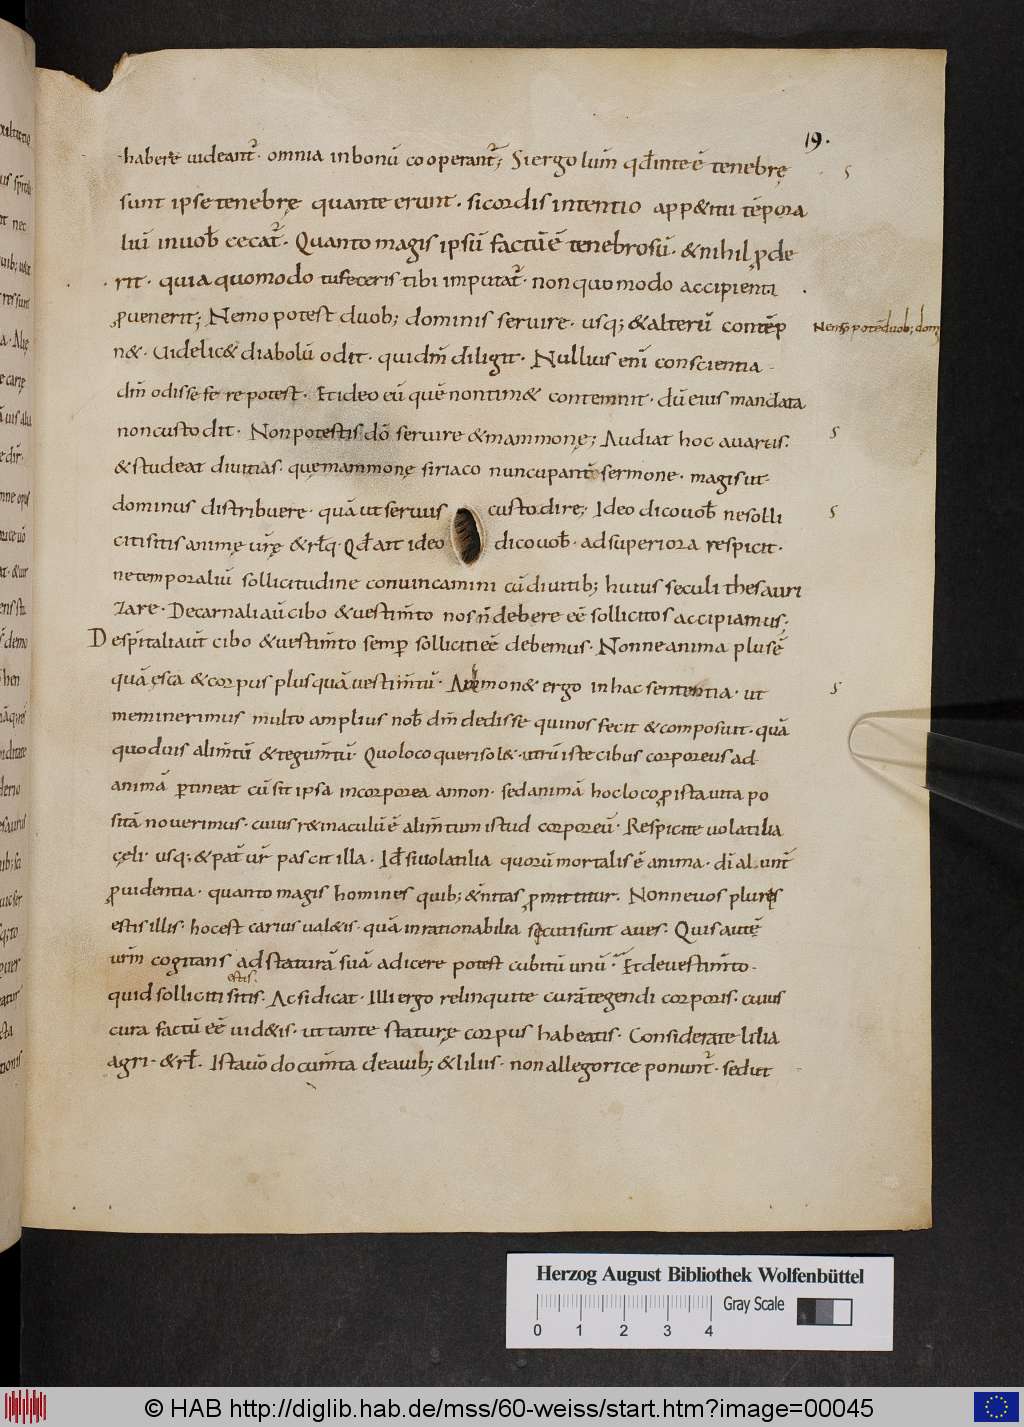 19.
habere uideant᷑· omnia inbonū cooperant᷑; Siergo lum̄ qđinte ē tenebrę
sunt ipsetenebrę quante erunt· sicordis intentio app&itu tēpora
liū inuoƀ cecat᷑· Quanto magis ipsū factū ē tenebrosū· &nihil ꝓde
rit· quia quomodo tufeceris tibi imputat᷑· nonquomodo accipienti
ꝓuenerit; Nemo potest duob; dominis seruire· usq; &alterū contēp
Nemo potē duob; dom̄
n&· Uidelic& diabolū odit· quidm̄ diligit· Nullius eni᷑ conscientia
dm̄ odisse fere potest· Et ideo eū quē nontim& contemnit· dū eius mandata
noncustodit· Nonpotestis dō seruire &mammonę; Audiat hoc auarus·
&studeat diuitias· quęmammonę siriaco nuncupant᷑ sermone· magis ut
dominus distribuere· quā ut seruus custodire; Ideo dico uoƀ nesolli
citisitis animę ur̄ę &rł̄q· Qđ ait ideo dico uoƀ· ad superiora respicit·
ne temporaliū sollicitudine conuincamini cū diuitib; huius seculi thesauri
zare· Decarnali aū cibo &uestim̄to nos n̄ debere eē sollicitos accipiamus;
Despīaliaūt cibo &uestim̄to semp̄ solliciti eē debemus· Nonne anima plusē
quā esca &corpus plus quā uestim̄tū· Admon& ergo inhac sententia· ut
meminerimus multo amplius noƀ dm̄ dedisse quinos fecit &composuit· quā
quoduis alim̄tū &tegum̄tū· Quo loco queri sol&· utrū iste cibus corporeus ad
animā ꝑtineat cū sit ipsa incorporea annon· sed animā hoc loco ꝓ ista uita po
sitā nouerimus· cuius r&inaculū ē alim̄tum istud corporeū· Respicite uolatilia
cęli· usq; &pat̄ ur̄ pascit illa· Id̄ si uolatilia quorū mortalis ē anima· dī alunt᷑
ꝓuidentia· quanto magis homines quib; &n̄itas ꝓmittitur· Nonne uos plures
estis illis· hoc est carius ual&is· quā inrationabilia sicuti sunt aues· Quis autē
ur̄m cogitans ad staturā suā adicere potest cubitū unū· Et de uestim̄to·
estis·
quid solliciti sitis· Ac si dicat· Illi ergo relinquite curā tegendi corporis· cuius
cura factū eē uid&is· ut tante staturę corpus habeatis· Considerate lilia
agri· &rł̄· Ista uō docum̄ta de auib; &liliis· non allegorice ponunt᷑· sed ut
Herzog August Bibliothek Wolfenbüttel
Gray Scale
0 1 2 3 4
© HAB http://diglib.hab.de/mss/60-weiss/start.htm?image=00045